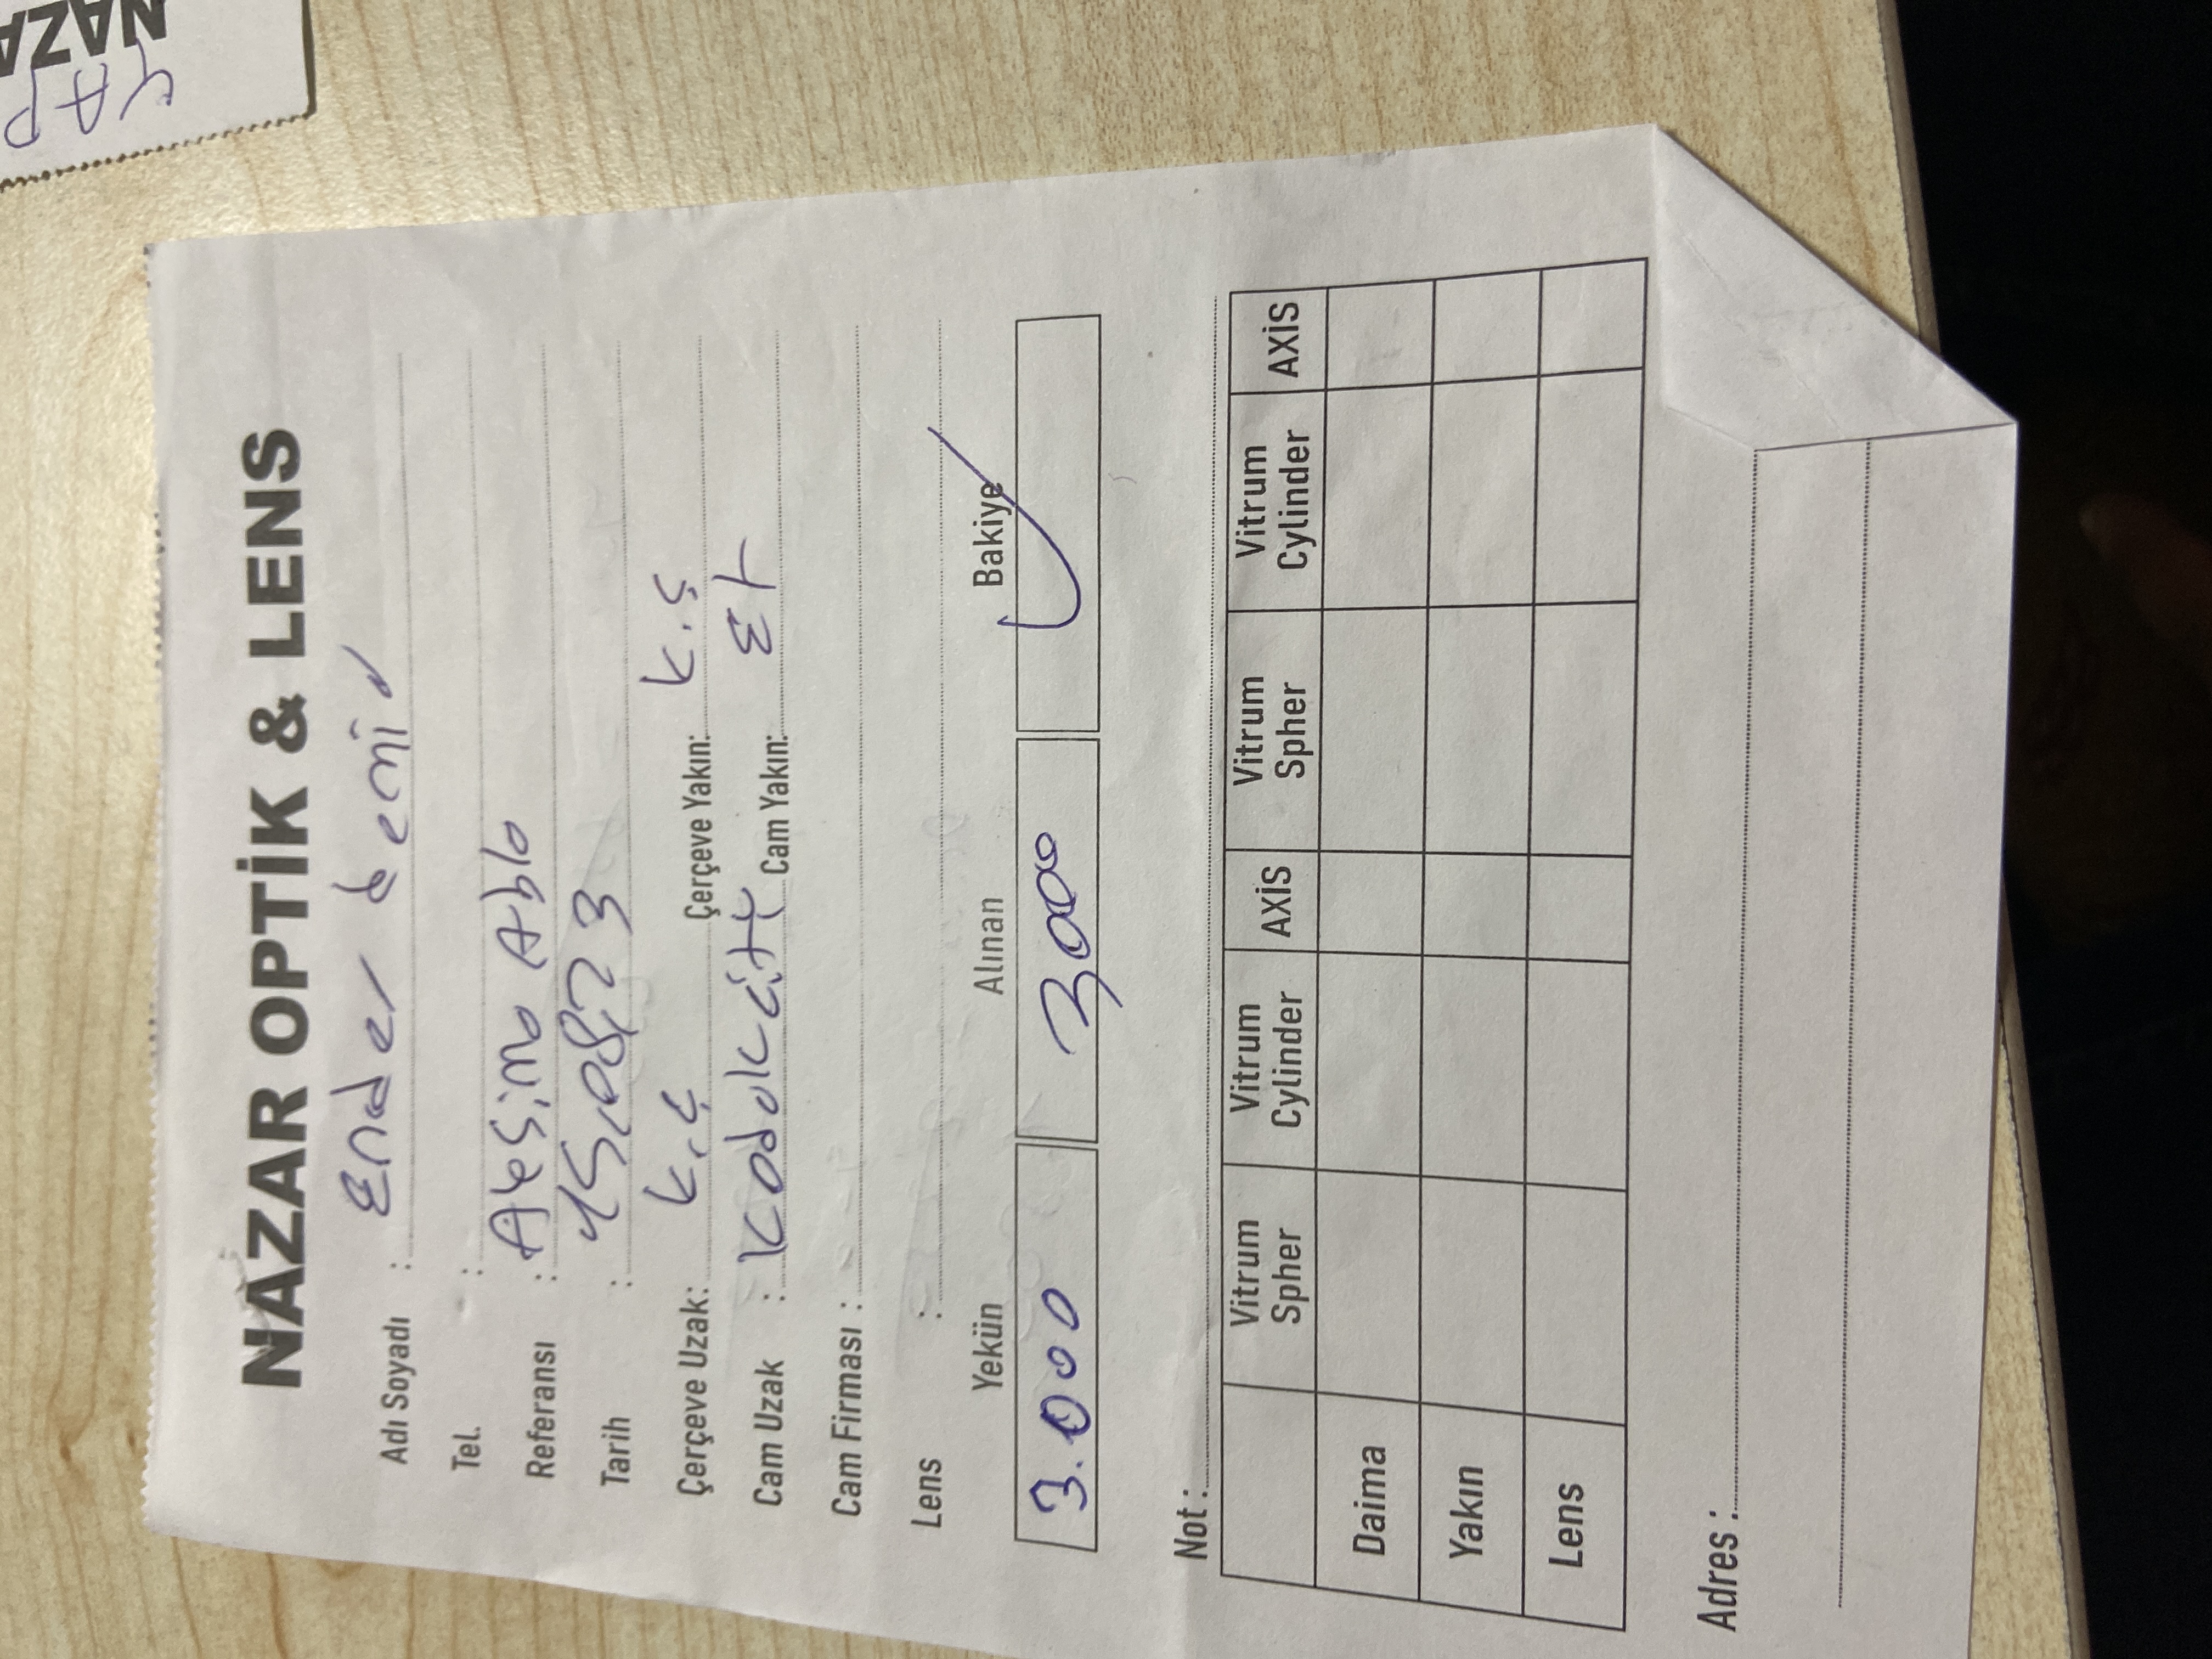 YAP
NAZA
NAZAR OPTİK & LENS
Adı Soyadı : Ender demir
Tel. :
Referansı : Abla
Tarih : 15,08,23
Çerçeve Uzak: K.Ç Çerçeve Yakın: K.Ç
Cam Uzak : Kodak City Cam Yakın:
Cam Firması :
Lens :
Yekün Alınan Bakiye
3.000 3000
Not :
Vitrum Spher Vitrum Cylinder AXİS Vitrum Spher Vitrum Cylinder AXİS
Daima
Yakın
Lens
Adres :